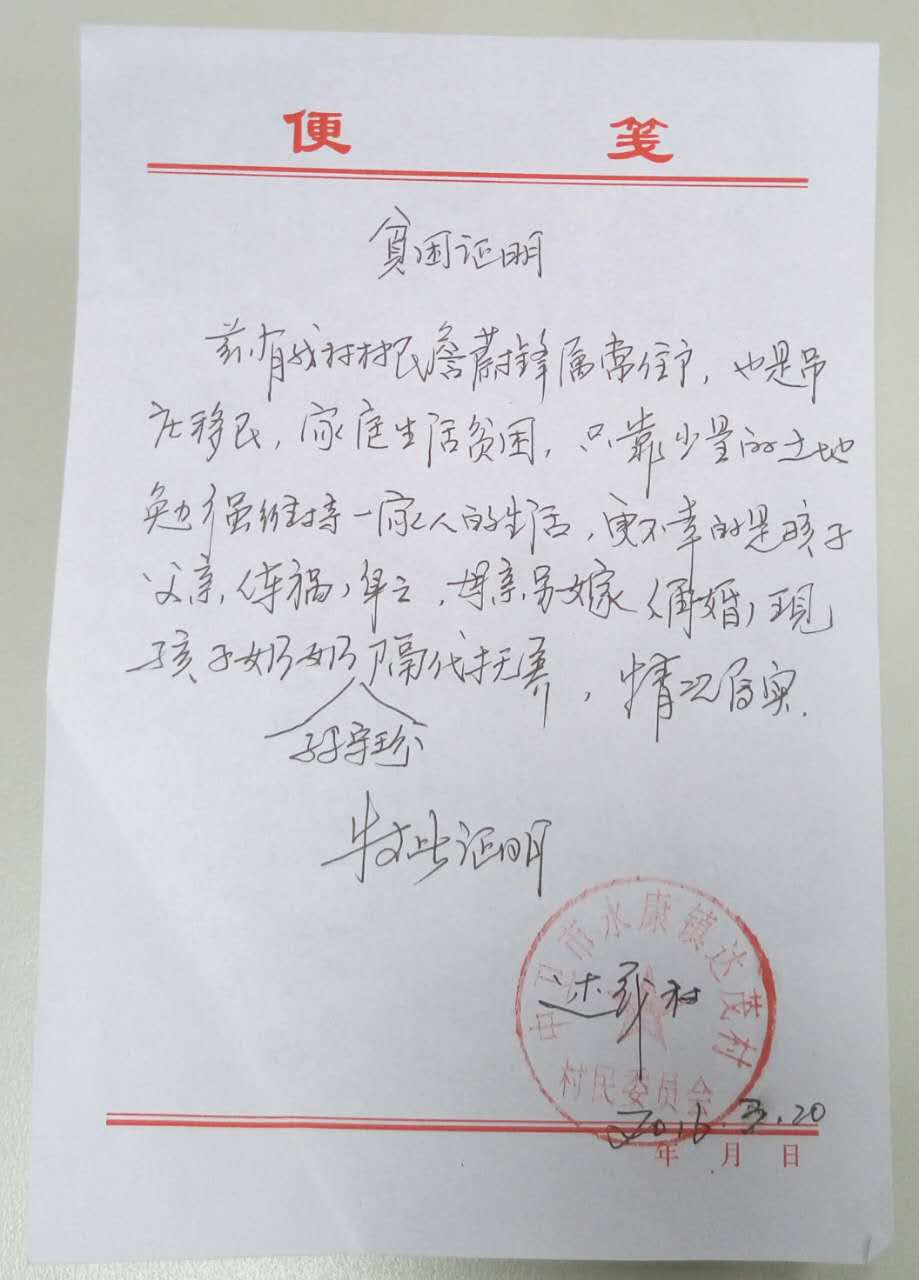 便 笺
贫困证明
兹有我村村民詹蔚锋属常住户，也是吊
庄移民，家庭生活贫困，只靠少量的土地
勉强维持一家人的生活，更不幸的是孩子
父亲（车祸）身亡，母亲另嫁（再婚）现
孩子奶奶隔代抚养，情况属实.
特此证明
中卫市永康镇达茂村
村民委员会
2016.3.20
年 月 日